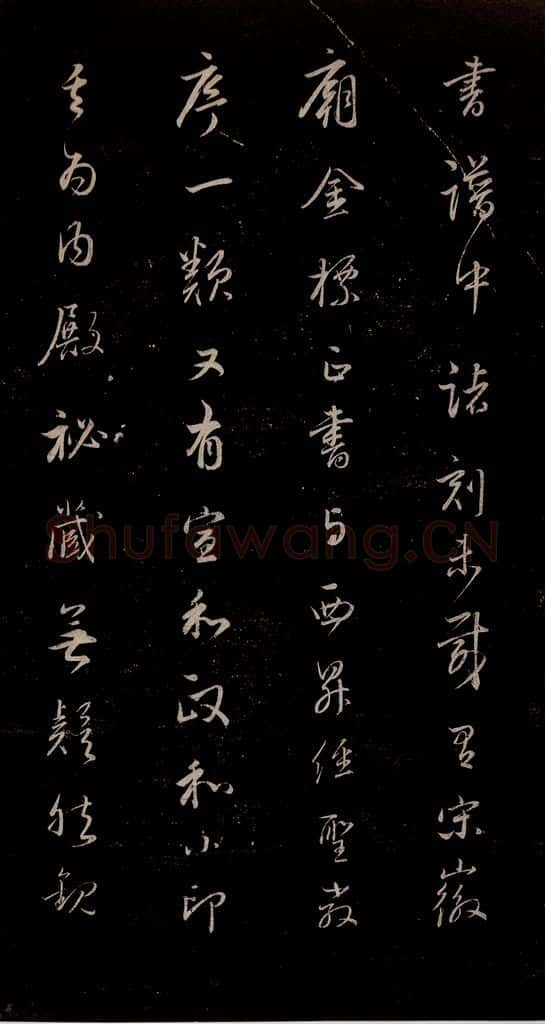 書譜中諸刻未載有宋徽
廟金標正書与西昇經聖教
序一類又有宣和政和小印
其為內殿祕藏無疑然觀
Shufawang.CN